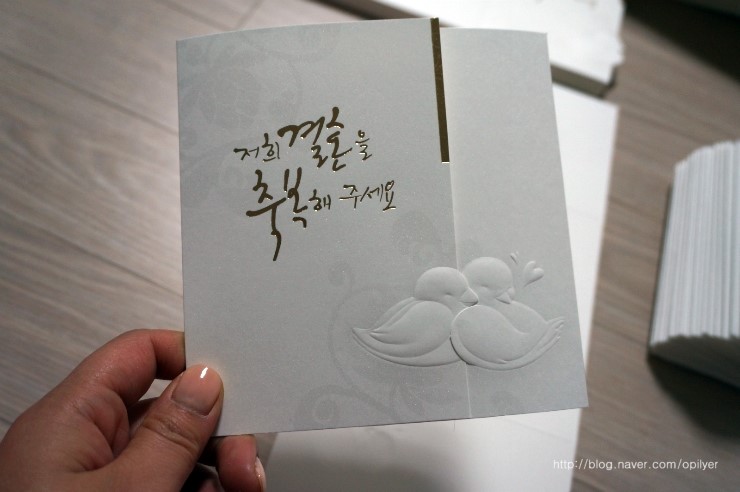 저희 결혼을
축복해 주세요
http://blog.naver.com/opilyer